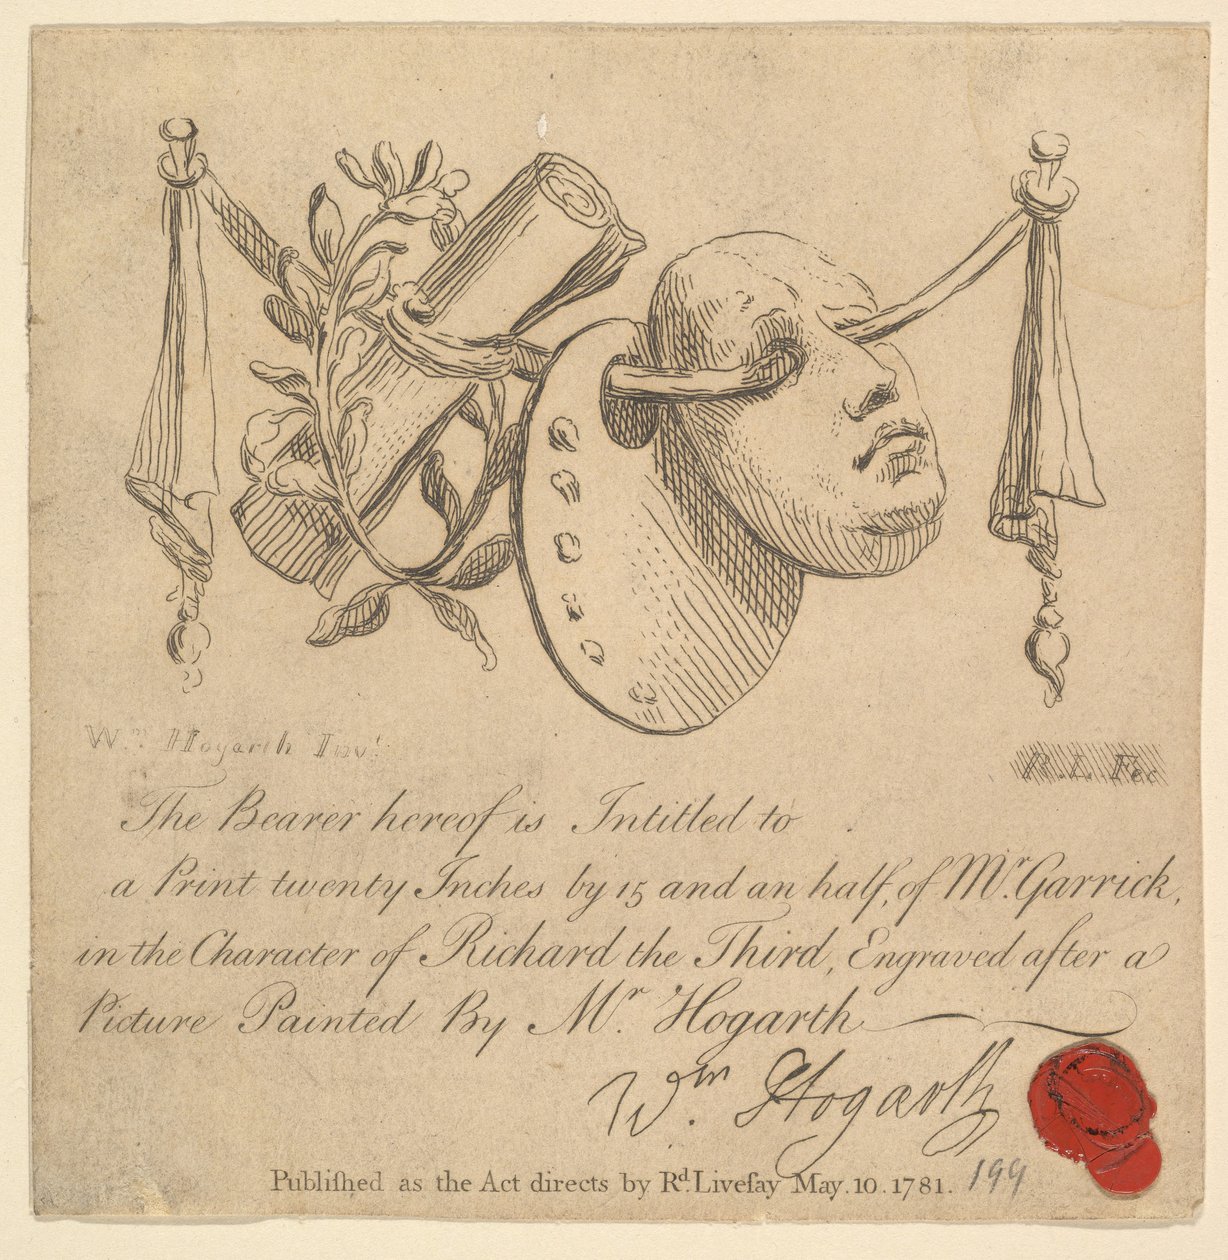 Wm. Hogarth Invt.
R.L. Fec
The Bearer hereof is Intitled to
a Print twenty Inches by 15 and an half, of Mr. Garrick,
in the Character of Richard the Third, Engraved after a
Picture Painted By Mr. Hogarth
Wm. Hogarth
Publiſhed as the Act directs by Rd. Liveſay May. 10. 1781.
199